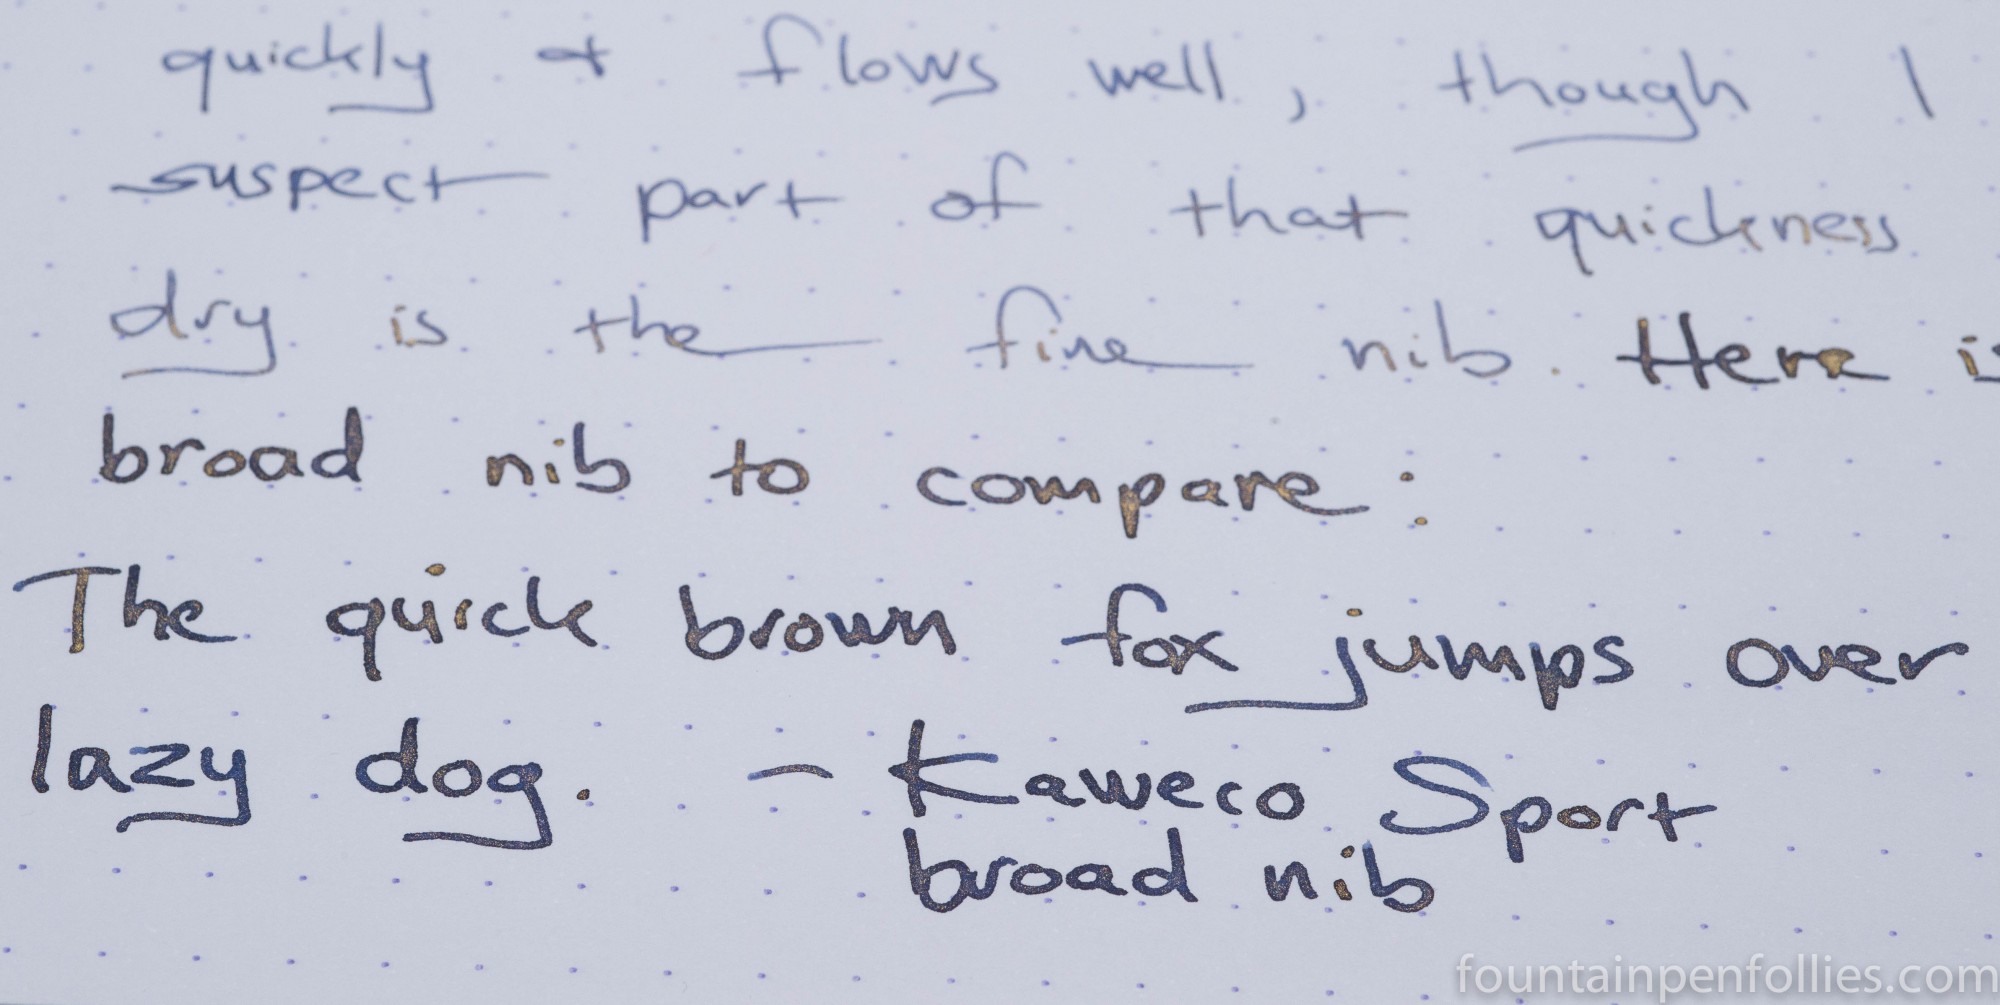 quickly & flows well, though I
suspect part of that quickness
dry is the fine nib. Here is
broad nib to compare:
The quick brown fox jumps over
lazy dog. – Kaweco Sport
broad nib
fountainpenfollies.com